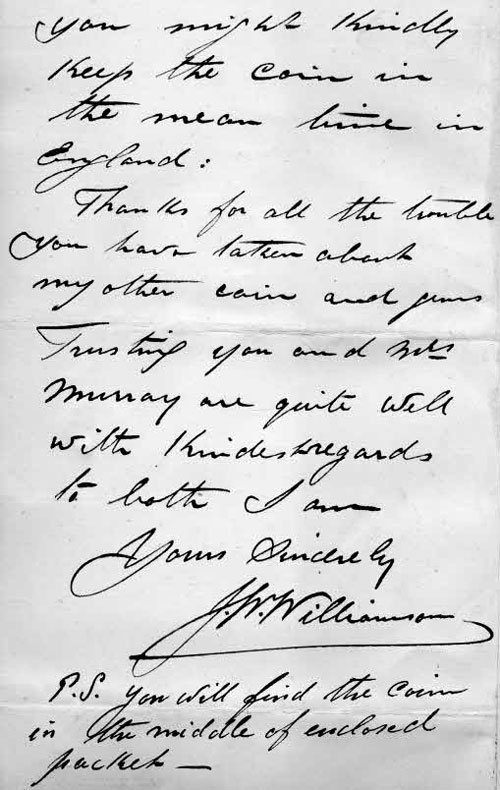 you might kindly
keep the coin in
the mean time in
England:
Thanks for all the trouble
you have taken about
my other coin and gems
Trusting you and Mrs
Murray are quite well
with Kindest regards
to both I am
Yours Sincerely
J. W. Williamson
P.S. you will find the coin
in the middle of enclosed
packet —